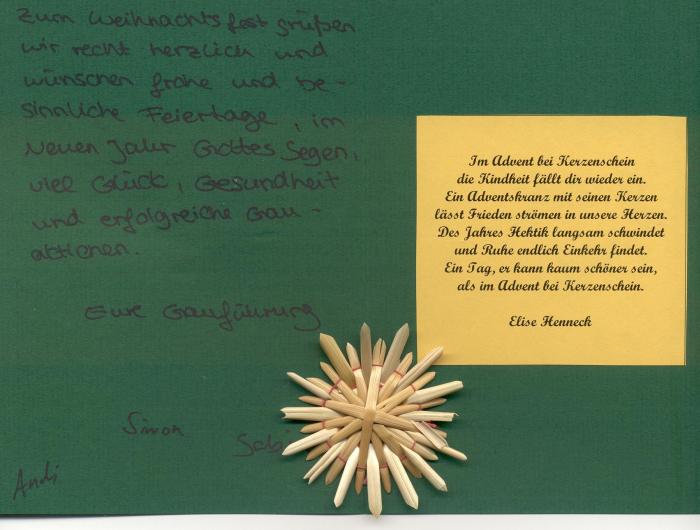 Zum Weihnachtsfest grüßen
wir recht herzlich und
wünschen frohe und be-
sinnliche Feiertage, im
Neuen Jahr Gottes Segen,
viel Glück, Gesundheit
und erfolgreiche Gau-
aktionen.
Eure Gauführung
Simon
Andi
Im Advent bei Kerzenschein
die Kindheit fällt dir wieder ein.
Ein Adventskranz mit seinen Kerzen
lässt Frieden strömen in unsere Herzen.
Des Jahres Hektik langsam schwindet
und Ruhe endlich Einkehr findet.
Ein Tag, er kann kaum schöner sein,
als im Advent bei Kerzenschein.
Elise Henneck